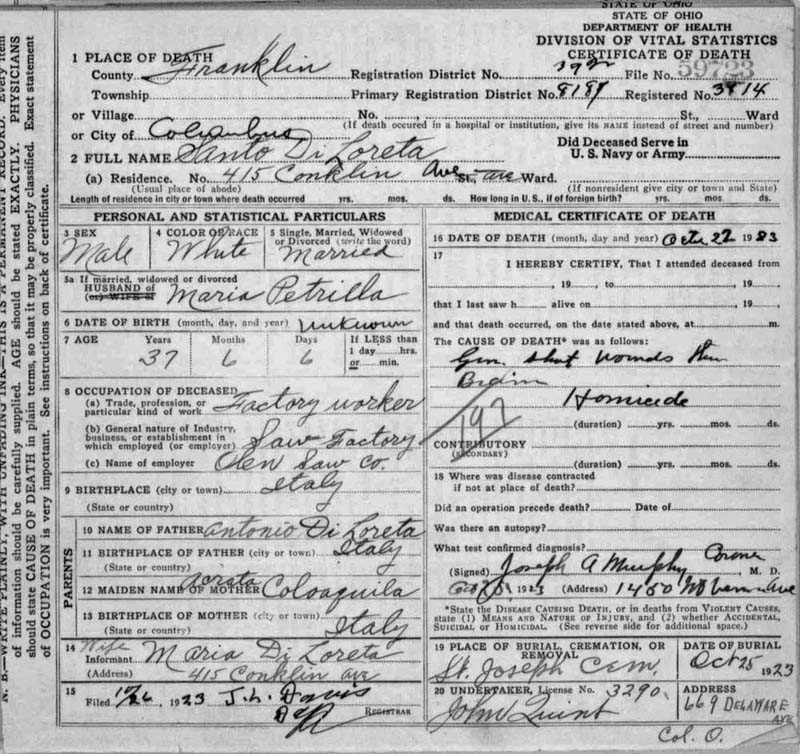 STATE OF OHIO
STATE OF OHIO
DEPARTMENT OF HEALTH
DIVISION OF VITAL STATISTICS
CERTIFICATE OF DEATH
1 PLACE OF DEATH
County Franklin Registration District No. 392 File No. 59723
Township Primary Registration District No. 8187 Registered No. 3914
or Village No. St., Ward
(If death occured in a hospital or institution, give its NAME instead of street and number)
or City of Columbus
Did Deceased Serve in
U. S. Navy or Army
2 FULL NAME Santo Di Loreta
(a) Residence. No. 415 Conklin Ave St., Ward.
(Usual place of abode) (If nonresident give city or town and State)
Length of residence in city or town where death occurred yrs. mos. ds. How long in U. S., if of foreign birth? yrs. mos. ds.
PERSONAL AND STATISTICAL PARTICULARS
3 SEX Male
4 COLOR OR RACE White
5 Single, Married, Widowed or Divorced (write the word) Married
5a If married, widowed or divorced
HUSBAND of
(or) WIFE of Maria Petrilla
6 DATE OF BIRTH (month, day, and year) Unknown
7 AGE Years Months Days If LESS than
1 day hrs.
or min.
37 6 6
8 OCCUPATION OF DECEASED
(a) Trade, profession, or
particular kind of work Factory worker
(b) General nature of Industry,
business, or establishment in
which employed (or employer) Saw Factory
(c) Name of employer Olen Saw Co.
9 BIRTHPLACE (city or town) Italy
(State or country)
PARENTS
10 NAME OF FATHER Antonio Di Loreta
11 BIRTHPLACE OF FATHER (city or town) Italy
(State or country)
12 MAIDEN NAME OF MOTHER Acrata Coloaquila
13 BIRTHPLACE OF MOTHER
(State or country) Italy
14 Wife
Informant Maria Di Loreta
(Address) 415 Conklin ave
15
Filed 10/26, 1923 J. L. Davis
REGISTRAR
MEDICAL CERTIFICATE OF DEATH
16 DATE OF DEATH (month, day and year) Oct 22 1923
17
I HEREBY CERTIFY, That I attended deceased from
, 19 , to , 19 ,
that I last saw h alive on , 19 ,
and that death occurred, on the date stated above, at m.
The CAUSE OF DEATH* was as follows:
Gun shot wounds thru
Brain
Homicide
197
(duration) yrs. mos. ds.
CONTRIBUTORY
(SECONDARY)
(duration) yrs. mos. ds.
18 Where was disease contracted
if not at place of death?
Did an operation precede death? Date of
Was there an autopsy?
What test confirmed diagnosis?
(Signed) Joseph A Murphy Coroner, M. D.
, 1923 (Address) 1450 Ave
*State the DISEASE CAUSING DEATH, or in deaths from VIOLENT CAUSES,
state (1) MEANS AND NATURE OF INJURY, and (2) whether ACCIDENTAL,
SUICIDAL or HOMICIDAL. (See reverse side for additional space.)
19 PLACE OF BURIAL, CREMATION, OR REMOVAL
St. Joseph Cem.
DATE OF BURIAL
Oct 25 1923
20 UNDERTAKER, License No. 3290
John Quint
ADDRESS
669 DELAWARE AVE
Col. O.
N. B.—WRITE PLAINLY, WITH UNFADING INK—THIS IS A PERMANENT RECORD. Every item
of information should be carefully supplied. AGE should be stated EXACTLY. PHYSICIANS
should state CAUSE OF DEATH in plain terms, so that it may be properly classified. Exact statement
of OCCUPATION is very important. See instructions on back of certificate.